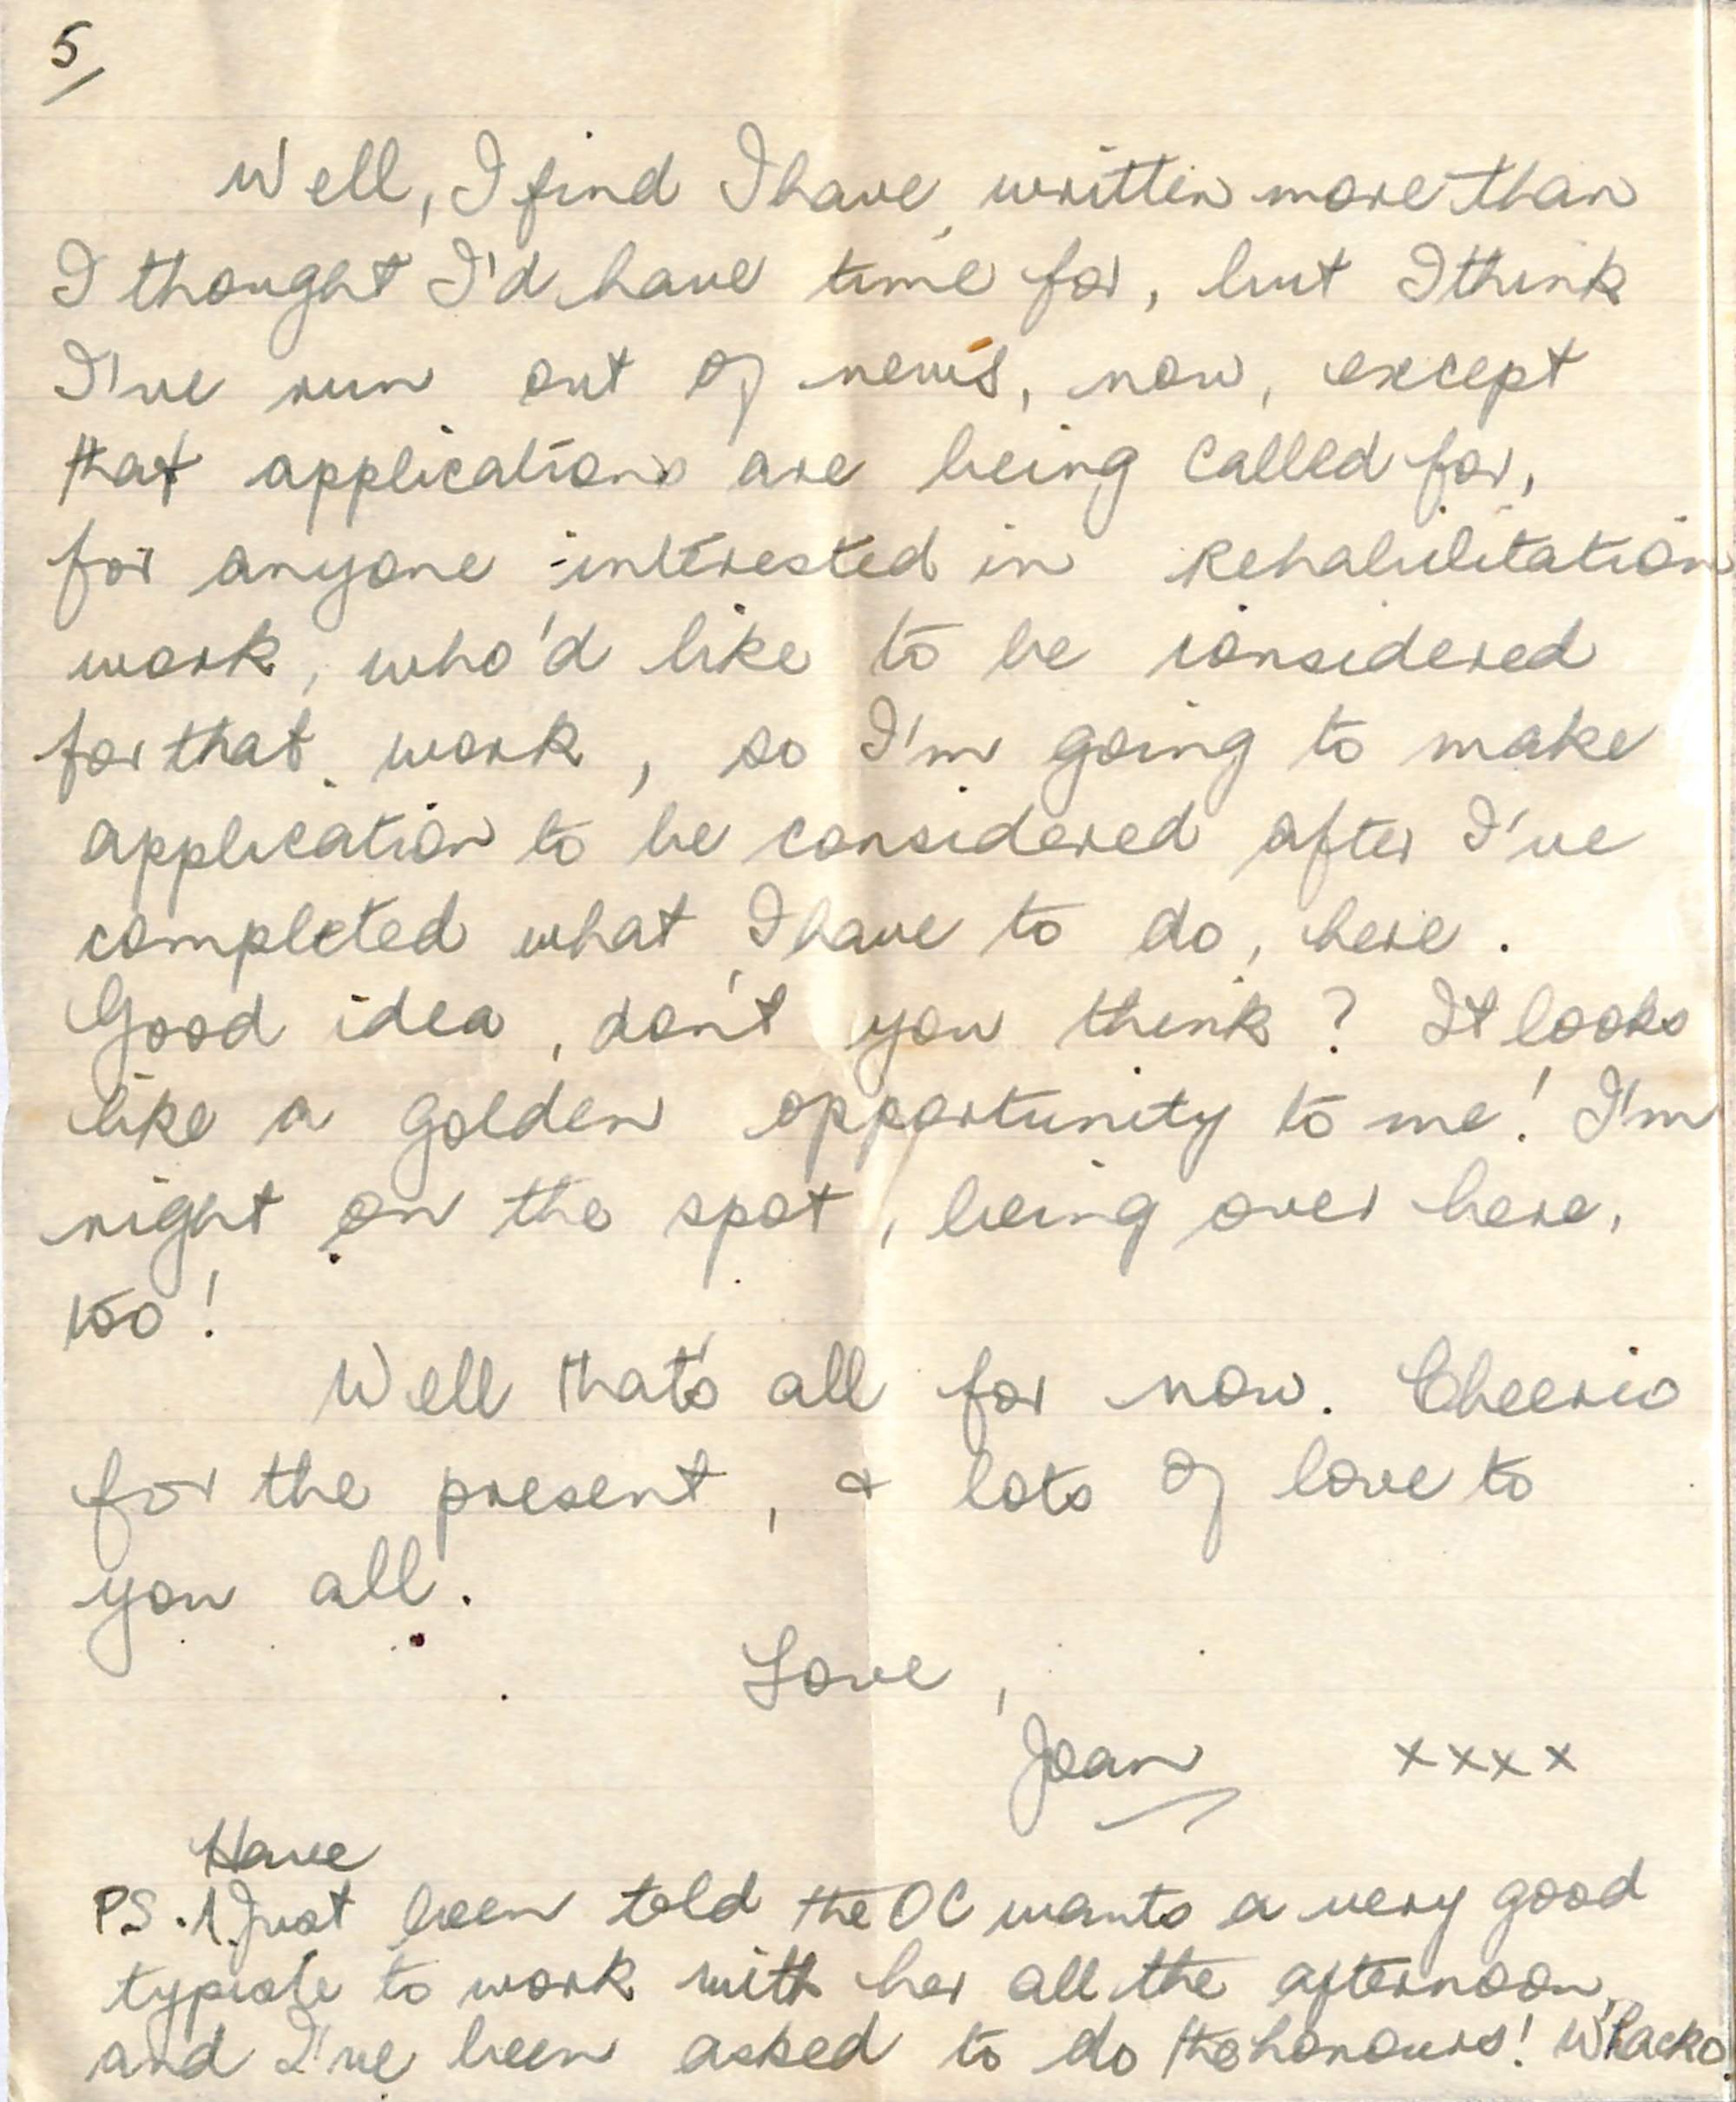 5/
Well, I find I have written more than
I thought I'd have time for, but I think
I've run out of news, now, except
that applications are being called for,
for anyone interested in Rehabilitation
work, who'd like to be considered
for that work, so I'm going to make
application to be considered after I've
completed what I have to do, here.
Good idea, don't you think? It looks
like a golden opportunity to me! I'm
right on the spot, being over here,
too!
Well that's all for now. Cheerio
for the present, & lots of love to
you all.
Love,
Joan xxxx
Have
PS. Just been told the OC wants a very good
typiste to work with her all the afternoon,
and I've been asked to do the honours! Whacko!